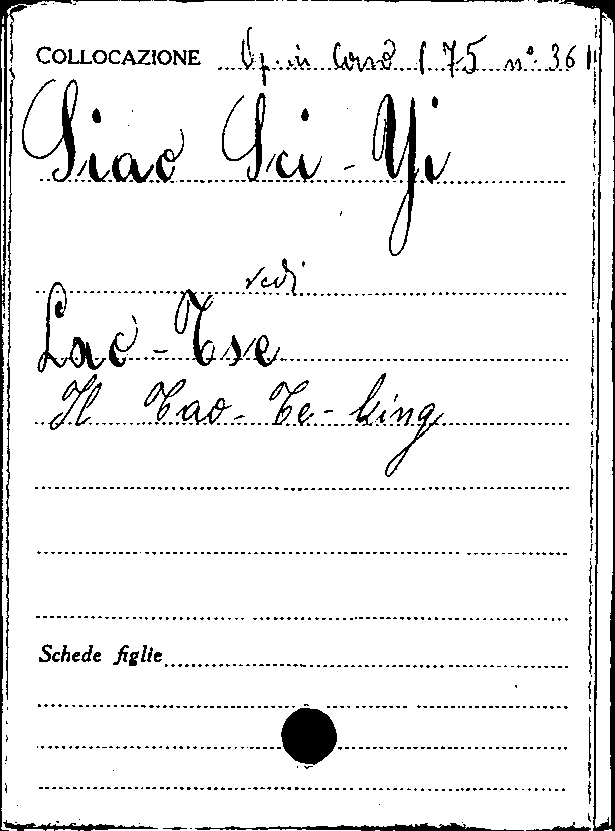 COLLOCAZIONE Op. in Corso ( 75 n° 361
Siao Sci-Yi
vedi
Lao-Tse
Il Tao-Te-king
Schede figlie